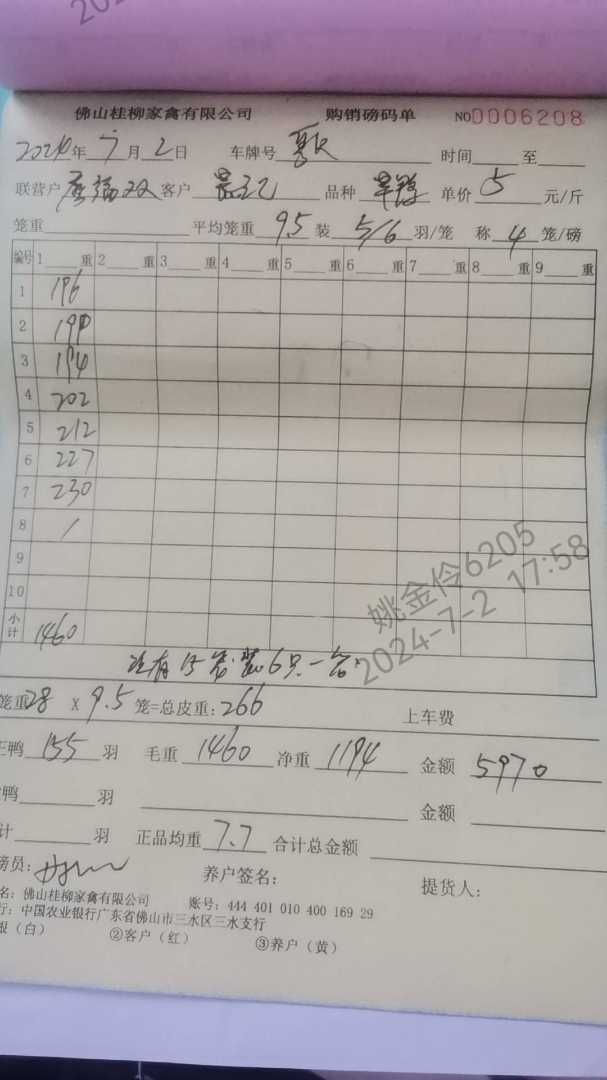 佛山桂柳家禽有限公司 购销磅码单 NO0006208
2024年7月2日 车牌号 时间 至
联营户 客户 品种 旱鸭 单价 5 元/斤
笼重 平均笼重 9.5 装 5/6 羽/笼 称 4 笼/磅
编号 1 重 2 重 3 重 4 重 5 重 6 重 7 重 8 重 9 重
1 196
2 199
3 194
4 202
5 212
6 227
7 230
8 /
9
10
小计 1460
没有 15 装6只一笼
笼重28 X 9.5 笼=总皮重：266 上车费
正鸭 155 羽 毛重 1460 净重 1194 金额 5970
鸭 羽 金额
计 羽 正品均重 7.7 合计总金额
磅员： 养户签名： 提货人：
名：佛山桂柳家禽有限公司 账号：444 401 010 400 169 29
行：中国农业银行广东省佛山市三水区三水支行
（白） ②客户（红） ③养户（黄）
姚金伶6205
2024-7-2 17:58